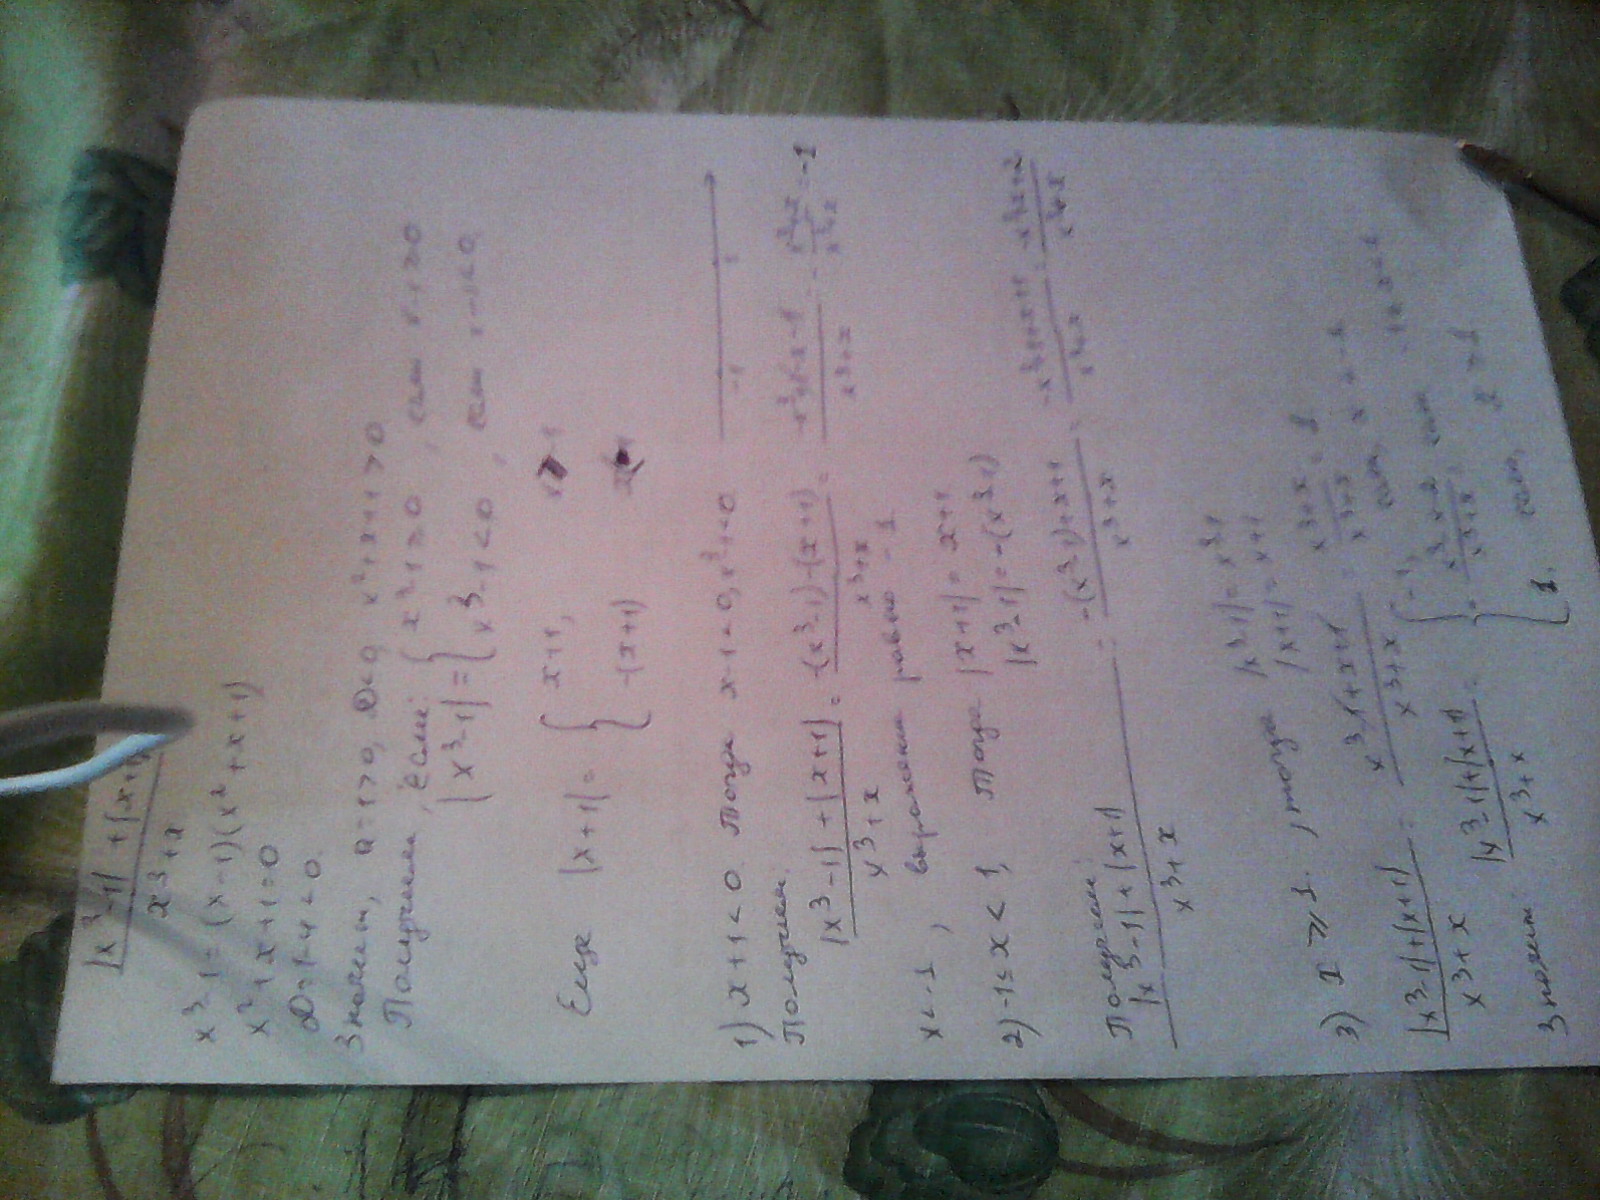 |x³-1| + |x+1|
x³+x
x³-1 = (x-1)(x²+x+1)
x²+x+1=0
D=1-4<0.
Значит, a=1>0, D<0, x²+x+1>0
Получим, если: { x³-1≥0, если x-1≥0
|x³-1| = { x³-1<0, если x-1<0,
Еще |x+1| = { x+1,
-(x+1)
-1 1
1) x+1<0. Тогда x-1<0, x³-1<0
Получим.
|x³-1|+|x+1| / x³+x = -(x³-1)-(x+1) / x³+x = -x³+1-x-1 / x³+x = - x³+x / x³+x = -1
x<-1, выражение равно -1
2) -1≤x<1, тогда |x+1|=x+1
|x³-1|=-(x³-1)
Получим:
|x³-1|+|x+1| / x³+x = -(x³-1)+x+1 / x³+x = -x³+1+x+1 / x³+x = -x³+x+2 / x³+x
3) x≥1., тогда |x³-1|=x³-1
|x+1|=x+1
|x³-1|+|x+1| / x³+x = x³-1+x+1 / x³+x = x³+x / x³+x = 1
Значит: |x³-1|+|x+1| / x³+x = { -1, если, x<-1
если
1, если, x≥1